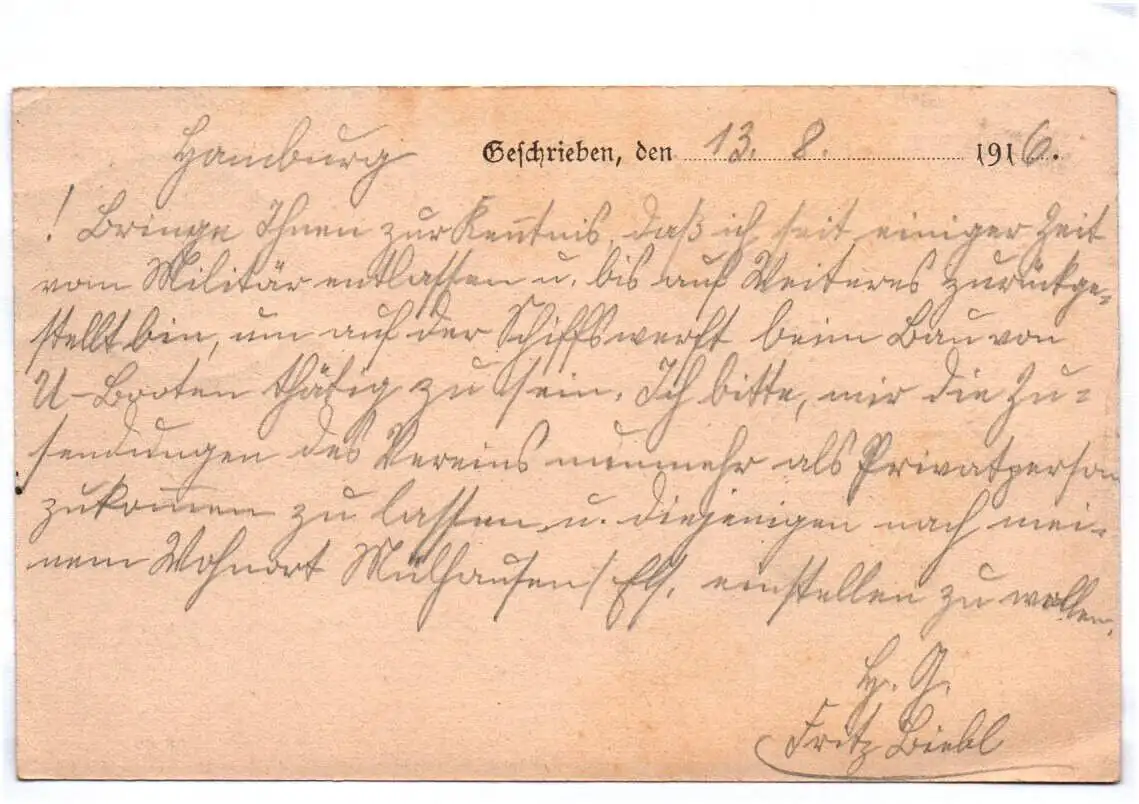 Hamburg Geschrieben, den 13. 8. 1916.
! Bringe Ihnen zur Kenntnis, daß ich seit einiger Zeit
vom Militär entlassen u. bis auf Weiteres zurückge-
stellt bin, um auf der Schiffswerft beim Bau von
U-Booten thätig zu sein. Ich bitte, mir die Zu-
sendungen des Vereins nunmehr als Privatperson
zukom̅en zu lassen u. diejenigen nach mei-
nem Wohnort Mülhausen / Els. einstellen zu wollen.
H. G.
Fritz Biebl